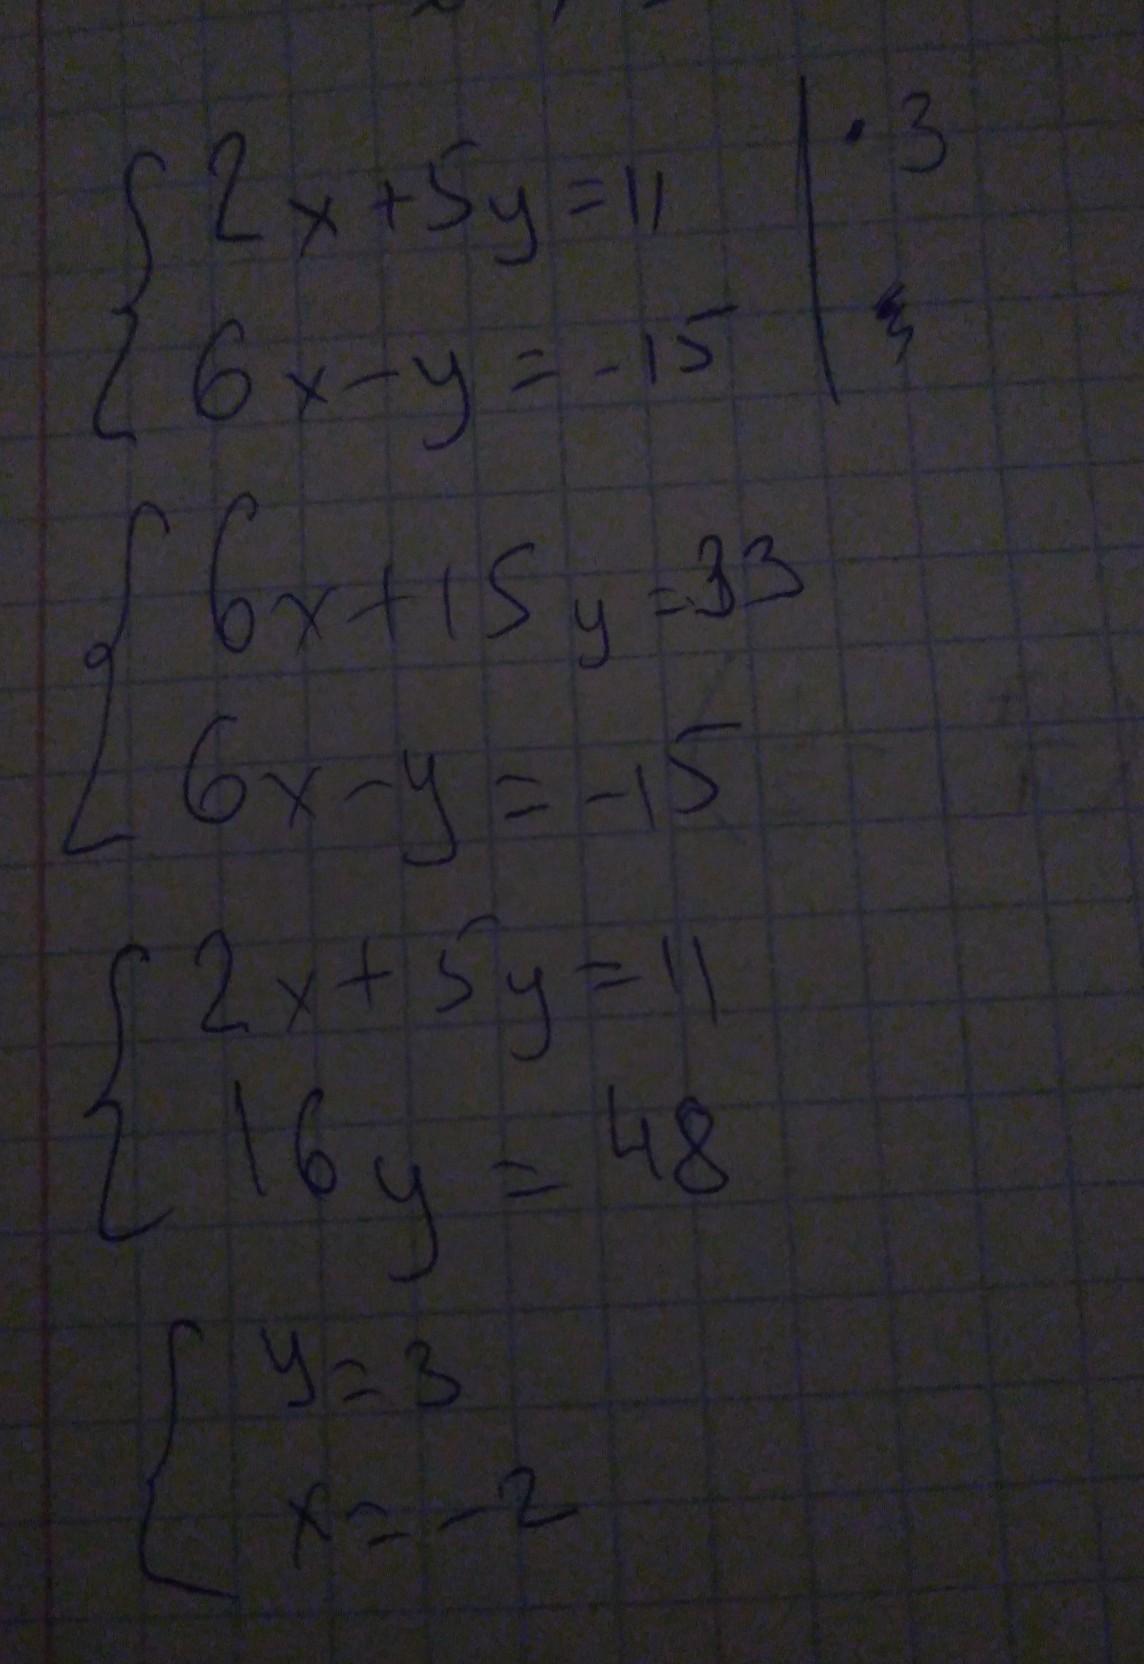 2x+5y=11 | · 3
6x-y=-15
6x+15y=33
6x-y=-15
2x+5y=11
16y=48
y=3
x=-2